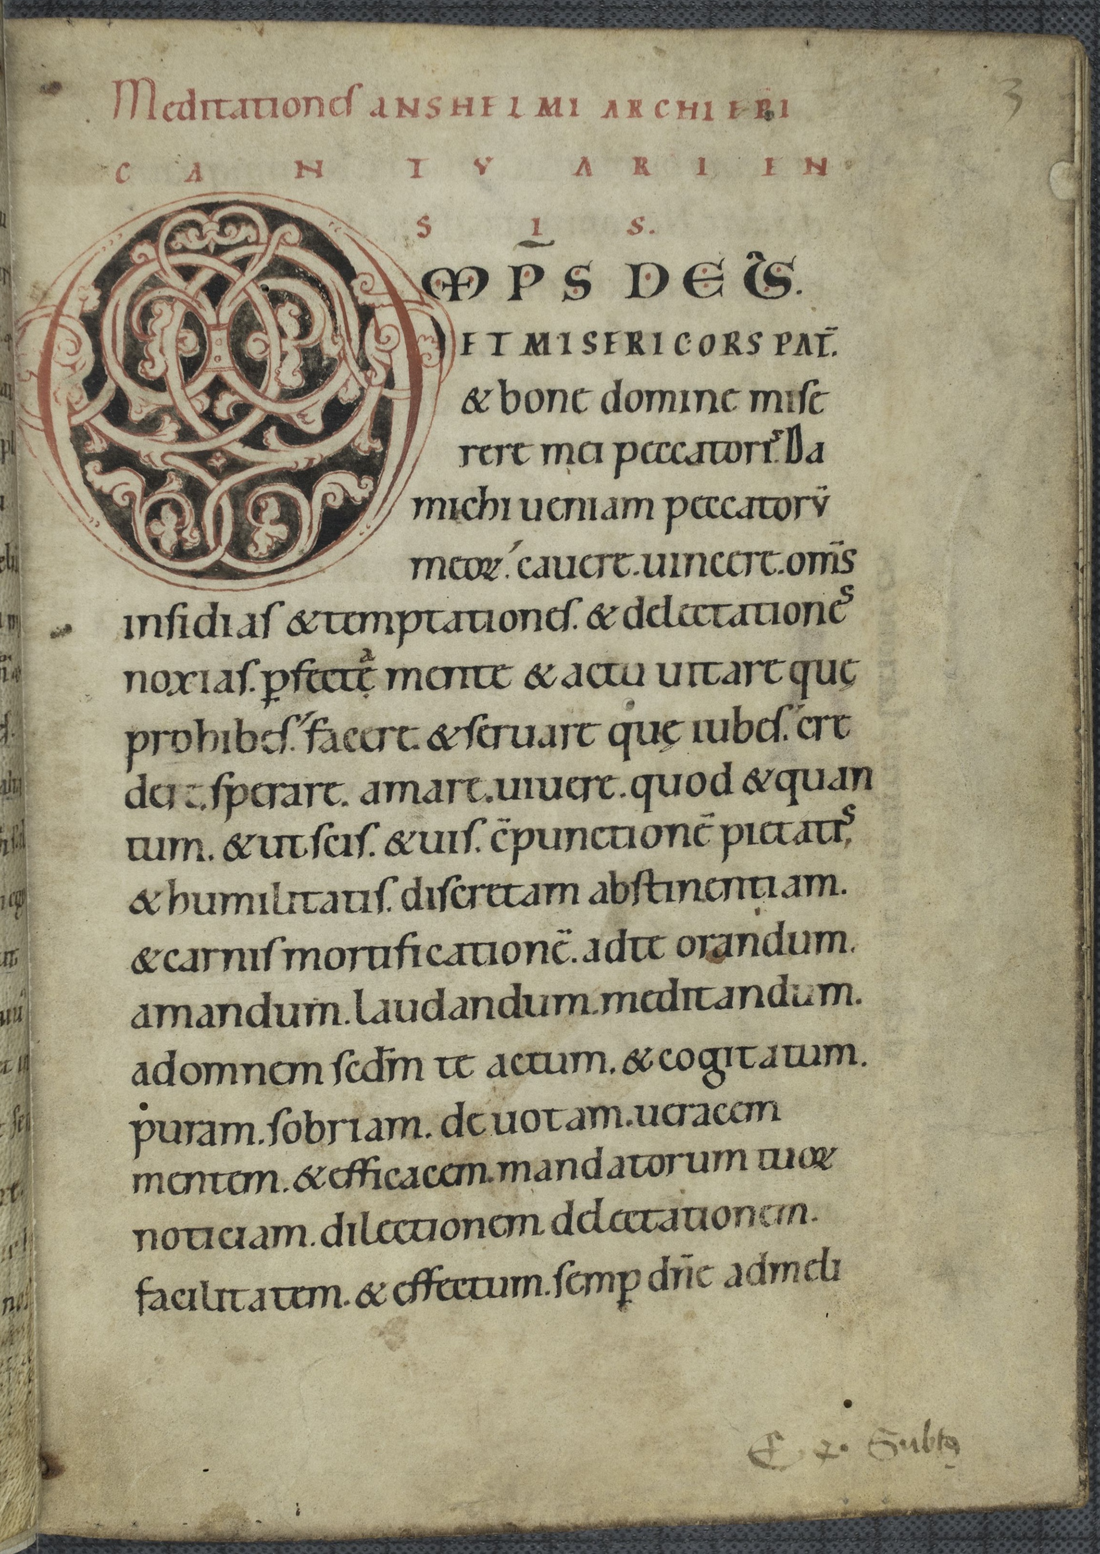 Meditationes ANSHELMI ARCHIEPI
3
CANTVARIEN
SIS.
OMP̄S DEUS.
ET MISERICORS PAT̄.
& bone domine mise
rere mei peccatoris. Da
michi ueniam peccatorū
meoꝝ. cauere. uincere. om̄s
insidias & temptationes. & delectationes
noxias. ꝑfectę mente & actu uitare quę
prohibes. facere. & seruare quę iubes. cre
dere. sperare. amare. uiuere. quod & quan
tum. & ut scis. & uis. c̄punctionē pietatis,
& humilitatis. discretam abstinentiam.
& carnis mortificationē. ad te orandum.
amandum. laudandum. meditandum.
ad omnem scd̄m te actum. & cogitatum.
puram. sobriam. deuotam. ueracem
mentem. & efficacem. mandatorum tuoꝝ
noticiam. dilectionem delectationem.
facilitatem. & effectum. semꝑ dn̄e ad meli